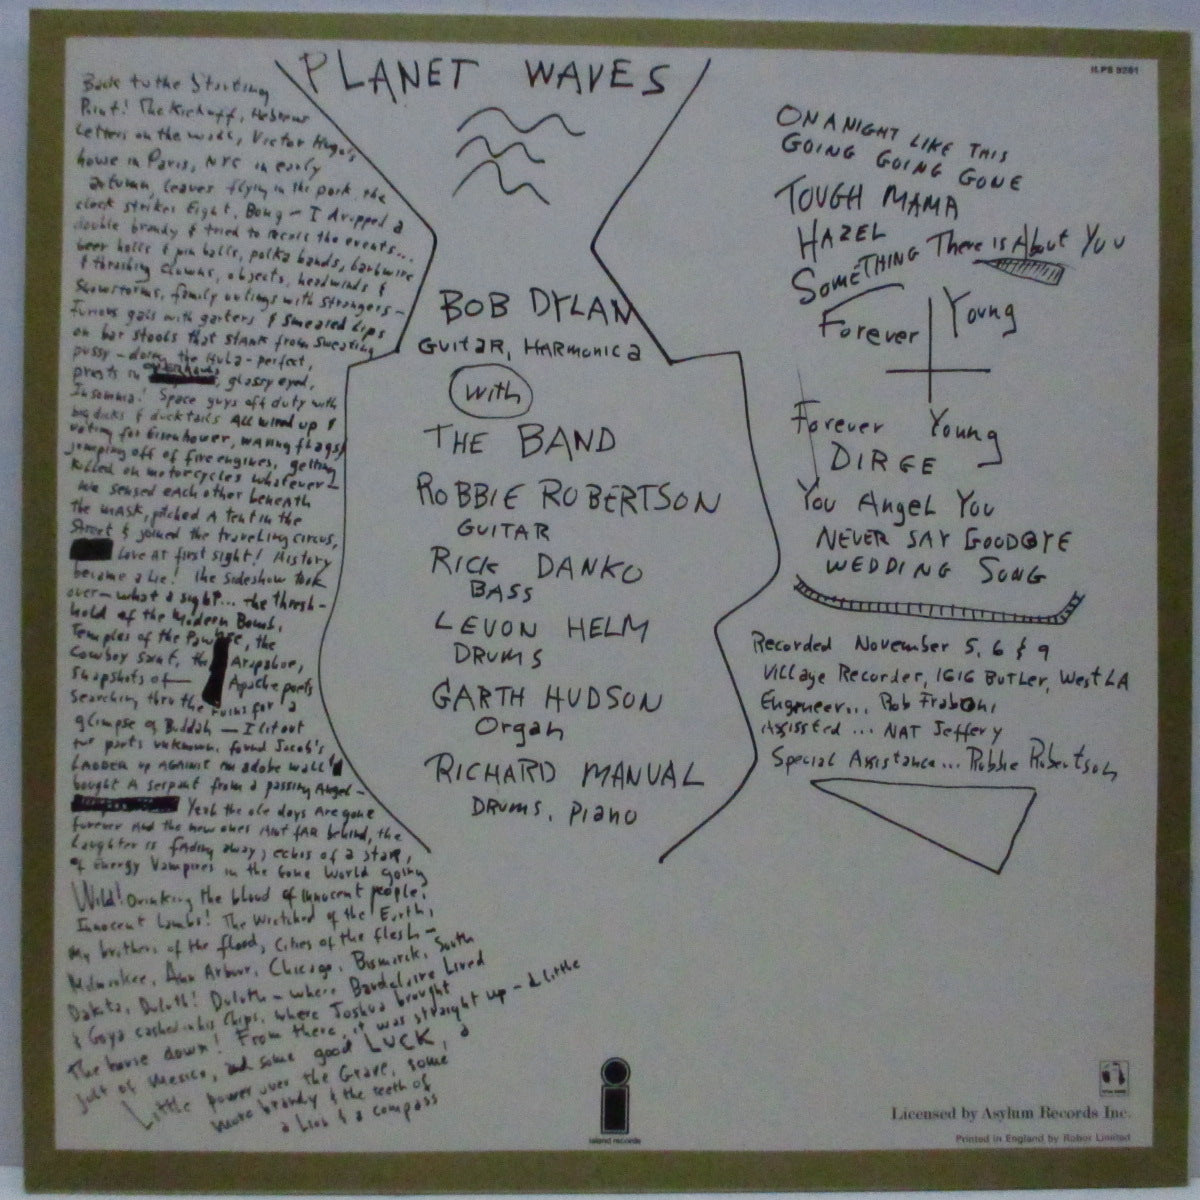 PLANET WAVES
Back to the Starting
Point! The Kickoff, Hebrew
Letters on the wall, Victor Hugo's
house in Paris, NYC in early
autumn, leaves flying in the park, the
clock strikes Eight, Bong — I dropped a
double brandy & tried to recall the events...
beer halls & pin balls, polka bands, barbwire
& thrashing clowns, objects, headwinds &
Snowstorms, family outings with strangers —
Furious gals with garters & smeared lips
on bar stools that stank from sweating
pussy — doing the Hula — perfect,
priests in glassy eyed,
Insomnia! Space guys off duty with
big dicks & ducktails All wired up &
voting for Eisenhower, waving flags &
jumping off of fire engines, getting
killed on motorcycles whatever —
We sensed each other beneath
the mask, pitched a tent in the
Street & joined the traveling circus,
Love at first sight! History
became a lie! the sideshow took
over — what a sight... the thresh-
hold of the Modern Bomb,
Temples of the Pawnee, the
Cowboy saint, the Arapahoe,
snapshots of — Apache poets
searching thru the ruins for a
glimpse of Buddah — I lit out
for parts unknown, found Jacob's
Ladder up against an adobe wall &
bought a serpent from a passing Angel —
Yeah the ole days Are gone
forever And the new ones Aint fAR behind, the
Laughter is fading away, echos of a star,
of Energy Vampires in the Gone World going
Wild! Drinking the blood of innocent people,
Innocent Lambs! The Wretched of the Earth,
My brothers of the flood, Cities of the flesh —
Milwaukee, Ann Arbour, Chicago, Bismarck, South
Dakota, Duluth! Duluth — where Baudelaire Lived
& Goya cashed in his Chips, where Joshua brought
The house down! From there, it was straight up — a little
jolt of Mexico, and some good LUCK, a
Little power over the Grave, some
more brandy & the teeth of
a lion & a compass
BOB DYLAN
Guitar, Harmonica
with
THE BAND
ROBBIE ROBERTSON
GUITAR
RICK DANKO
BASS
LEVON HELM
DRUMS
GARTH HUDSON
Organ
RICHARD MANUAL
DRUMS, Piano
ILPS 9261
ON A NIGHT LIKE THIS
GOING GOING GONE
TOUGH MAMA
HAZEL
SOMETHING There is About You
Forever Young
Forever Young
DIRGE
You Angel You
NEVER SAY GOODBYE
WEDDING SONG
Recorded November 5, 6 & 9
Village Recorder, 1616 Butler, West LA
Engeneer... Rob Fraboni
Assissted ... NAT Jeffery
Special Assistance... Robbie Robertson
island records
Licensed by Asylum Records Inc.
Printed in England by Robor Limited